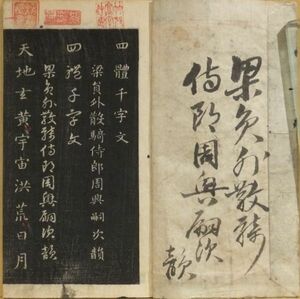 梁員外散騎
侍郎周興嗣次
韻
四體千字文
梁員外散騎侍郎周興嗣次韻
四體千字文
梁員外散騎侍郎周興嗣次韻
天地玄黃宇宙洪荒日月